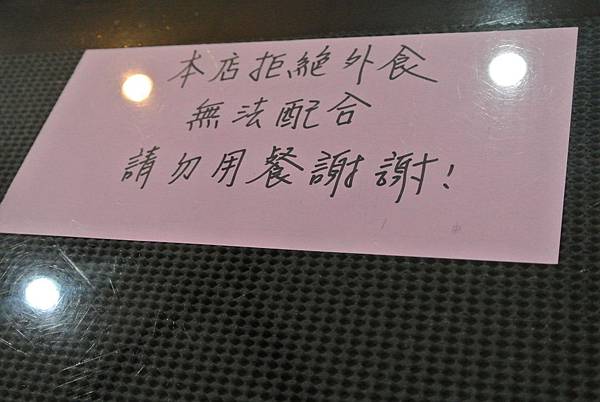 本店拒絕外食
無法配合
請勿用餐謝謝!